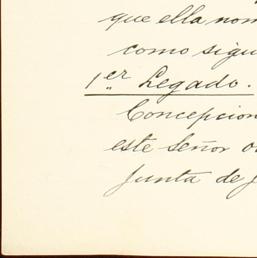 que ella nom
como sigu
1er. Legado.
Concepcion
este Señor o
Junta de